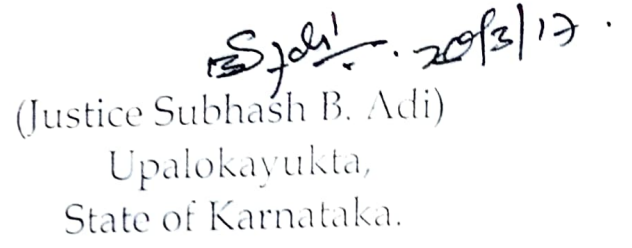 20/3/17.
(Justice Subhash B. Adi)
Upalokayukta,
State of Karnataka.